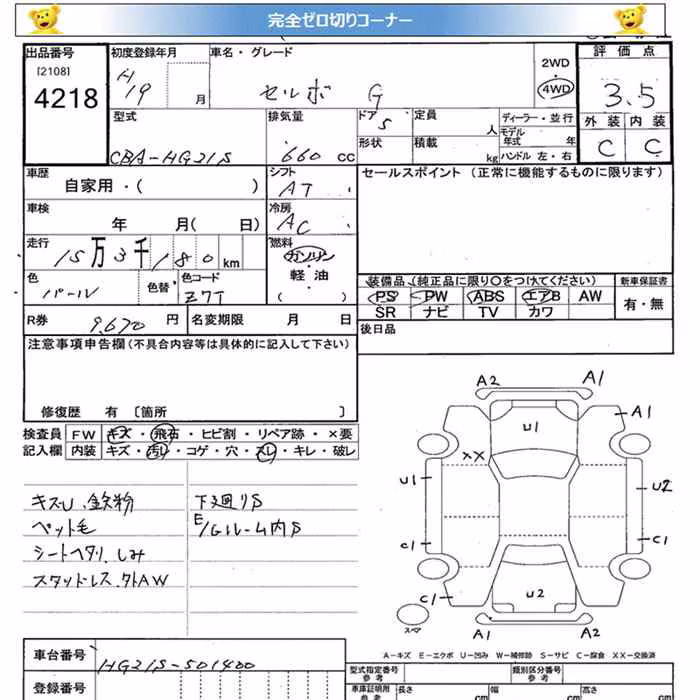 完全ゼロ切りコーナー
出品番号 初度登録年月 車名・グレード 評価点
[2108] 2WD
4218 H19 月 セルボ G 4WD 3.5
型式 排気量 ドア 5 定員 人 ディーラー・並行 外装 内装
モデル年式 年
CBA-HG21S 660 cc 形状 積載 kg ハンドル 左・右 C C
車歴 シフト セールスポイント (正常に機能するものに限ります)
自家用・( ) AT
車検 冷房
年 月( 日) AC
走行 燃料
15万3千180 km ガソリン
軽・油
( )
色 色替 色コード 装備品 (純正品に限り○をつけてください) 新車保証書
パール Z7T PS PW ABS エアB AW 有・無
SR ナビ TV カワ
R券 9,670 円 名変期限 月 日 後日品
注意事項申告欄 (不具合内容等は具体的に記入して下さい)
修復歴 有 [箇所 ]
検査員 FW キズ・飛石・ヒビ割・リペア跡・×要
記入欄 内装 キズ・汚レ・コゲ・穴・スレ・キレ・破レ
キズU、鉄粉 下廻りS
ペット毛 E/Gルーム内S
シートヘタリ、しみ
スタッドレス、外AW
A2 A1
U1 A1
XX
U1 U2
C1 C1
C1 U2
スペア A1 A2
A-キズ E-エクボ U-凹み W-補修跡 S-サビ C-腐食 XX-交換済
車台番号 HG21S-501400
登録番号
型式指定番号 参考 類別区分番号 参考
車庫証明用 参考 長さ cm 幅 cm 高さ cm